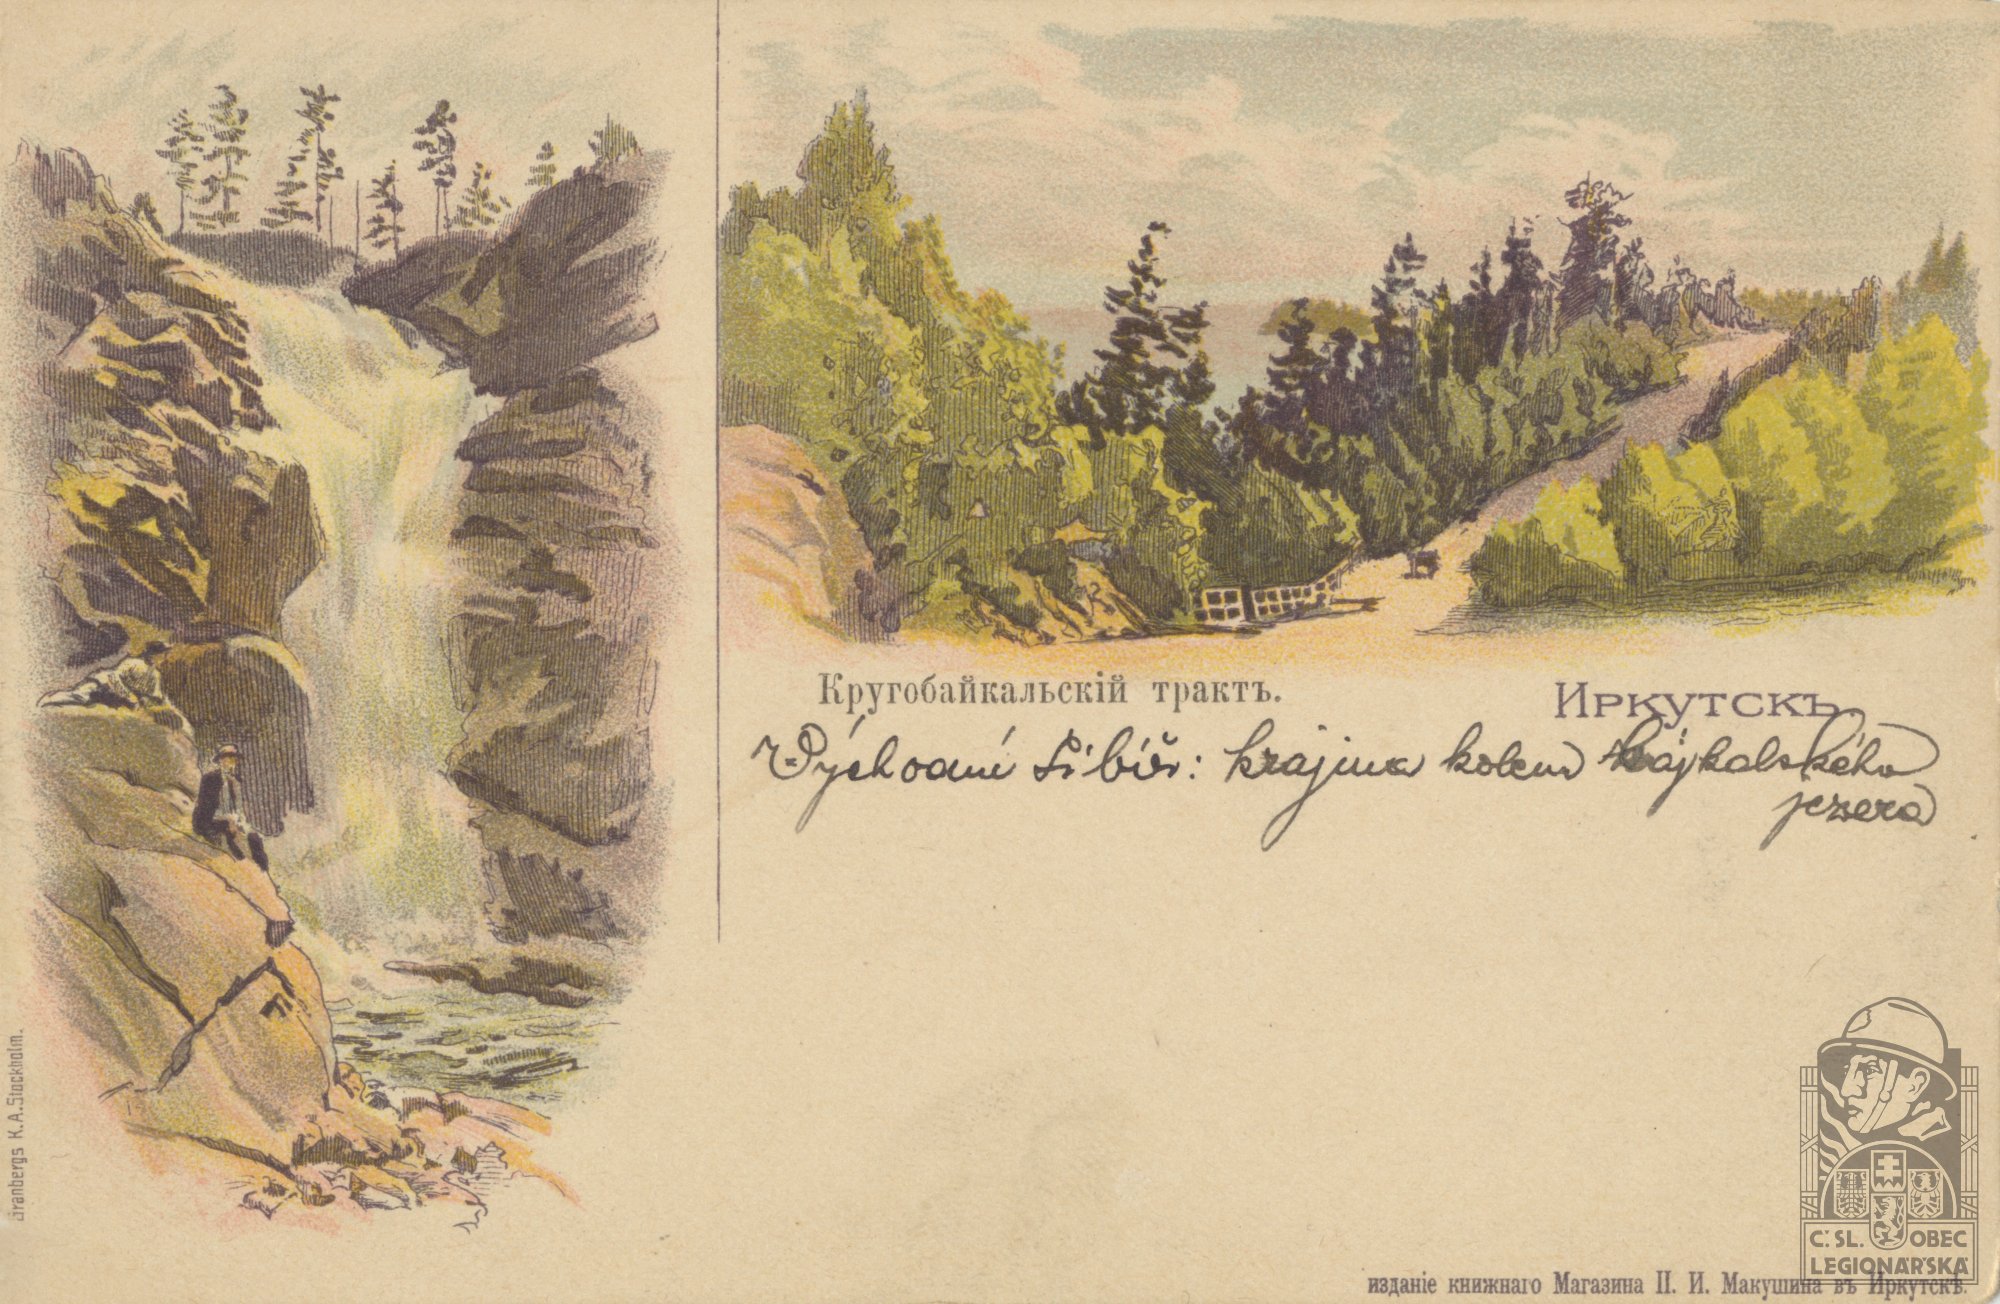 Кругобайкальскій трактъ.
Иркутскъ
Východní Sibiř: krajina kolem Bájkalského
jezera
Granbergs K.A. Stockholm.
изданіе книжнаго Магазина П. И. Макушина въ Иркутскѣ.
Č. SL. OBEC
LEGIONÁŘSKÁ